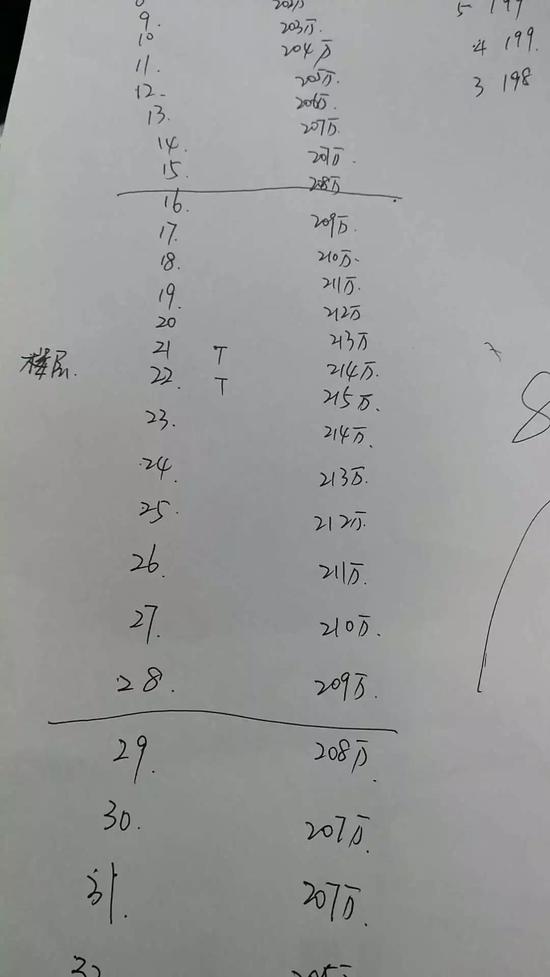 9. 203万.
10 204万 4 199.
11. 205万. 3 198
12. 206万.
13. 207万.
14. 207万.
15. 208万
16. 209万.
17. 210万.
18. 211万.
19. 212万
20 213万
楼层. 21 T 214万.
22. T 215万.
23. 214万.
24. 213万.
25. 212万.
26. 211万.
27. 210万.
28. 209万.
29. 208万.
30. 207万.
31. 207万.
8